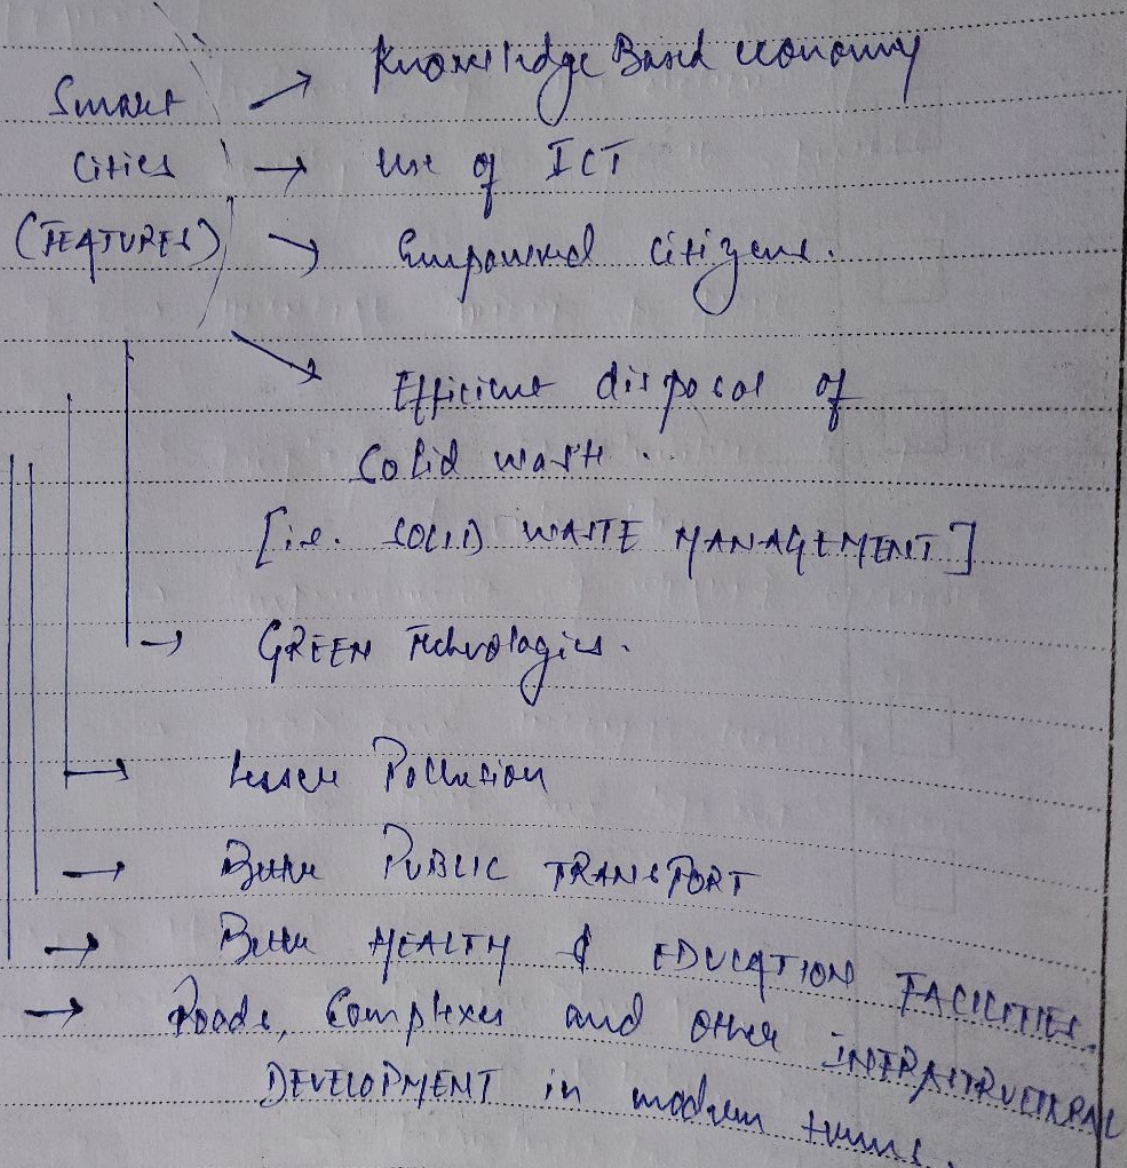 Smart → Knowledge Based economy
Cities → use of ICT
(FEATURES) → Empowered citizens.
→ Efficient disposal of
Solid waste.
[i.e. SOLID WASTE MANAGEMENT]
→ GREEN Technologies.
→ Lesser Pollution
→ Better PUBLIC TRANSPORT
→ Better HEALTH & EDUCATION FACILITIES.
→ Roads, Complexes and other INFRASTRUCTURAL
DEVELOPMENT in modern terms.